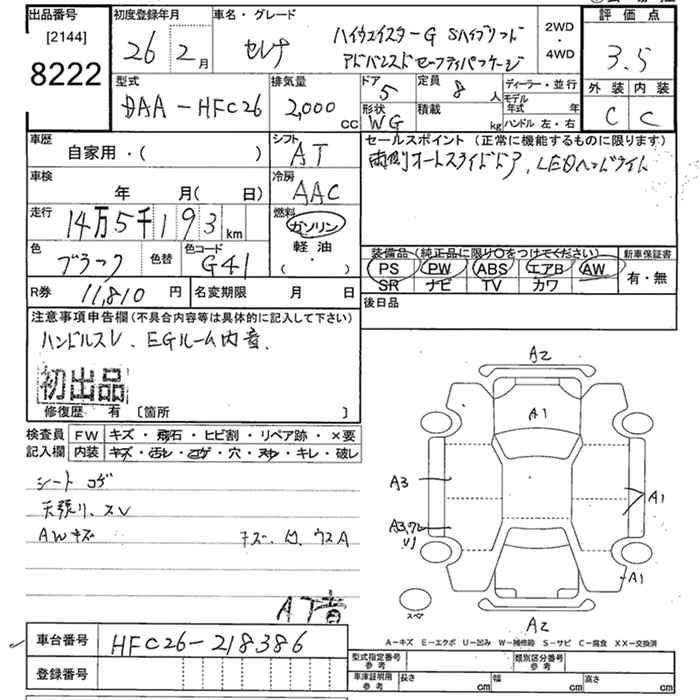 出品番号
[2144]
8222
初度登録年月
26 2 月
車名・グレード
セレナ ハイウェイスターG Sハイブリッド
アドバンスドセーフティパッケージ
2WD
・
4WD
評価点
3.5
外装 内装
C C
型式
DAA-HFC26
排気量
2,000
CC
ドア
5
定員
8 人
形状
WG
積載
kg
ディーラー・並行
モデル
年式 年
ハンドル 左・右
車歴
自家用・( )
シフト
AT
車検
年 月( 日)
冷房
AAC
走行
14万5千193 km
燃料
ガソリン
軽油
( ・ )
色
ブラック
色替
色コード
G41
R券
11,810 円
名変期限 月 日
セールスポイント(正常に機能するものに限ります)
両側オートスライドドア、LEDヘッドライト
装備品(純正品に限り○をつけてください)
PS PW ABS エアB AW
SR ナビ TV カワ
新車保証書
有・無
後日品
注意事項申告欄(不具合内容等は具体的に記入して下さい)
ハンドルスレ、EGルーム内音、
初出品
修復歴 有 [箇所 ]
検査員 FW キズ・飛石・ヒビ割・リペア跡・×要
記入欄 内装 キズ・汚レ・コゲ・穴・スレ・キレ・破レ
シート コゲ
天張り、スレ
AWキズ
A2
A1
A3
A1
A1
A2
スペア
A-キズ E-エクボ U-凹み W-補修跡 S-サビ C-腐食 XX-交換済
車台番号
HFC26-218386
登録番号
型式指定番号
参考
類別区分番号
参考
車庫証明用
参考
長さ cm 幅 cm 高さ cm